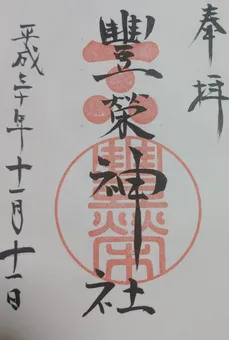 奉拝
豐榮神社
平成三十年十一月十一日
豐榮